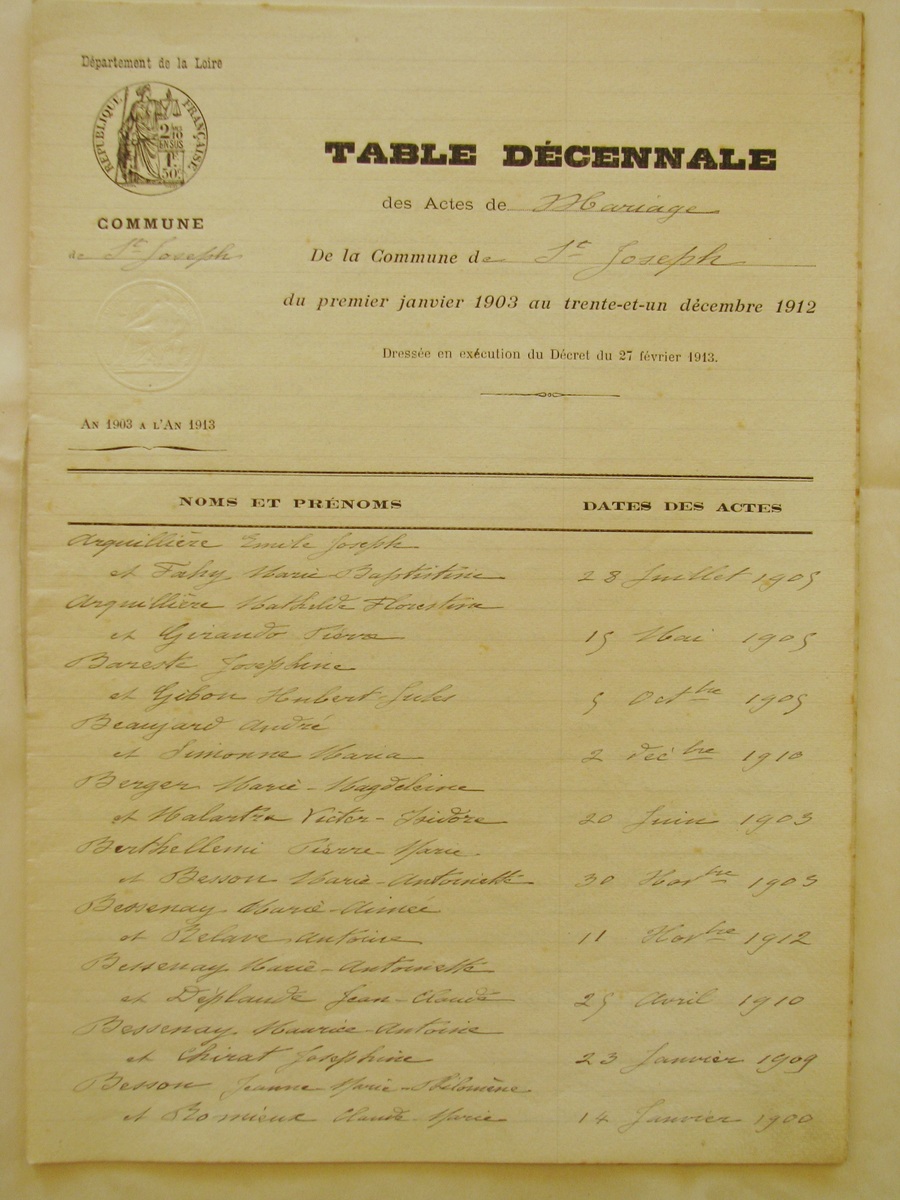 Département de la Loire
RÉPUBLIQUE FRANÇAISE
2/10
EN SUS
1F
50c
COMMUNE
de St Joseph
AN 1903 A L'AN 1913
TABLE DÉCENNALE
des Actes de Mariage
De la Commune de St Joseph
du premier janvier 1903 au trente-et-un décembre 1912
Dressée en exécution du Décret du 27 février 1913.
NOMS ET PRÉNOMS DATES DES ACTES
Arquillière Emile Joseph
et Fahy Marie Baptistine 28 Juillet 1905
Arquillière Mathilde Florestine
et Giraudo Pierre 15 Mai 1905
Bareste Joséphine
et Gibon Hubert-Jules 5 Octbre 1905
Beaujard André
et Simonne Maria 2 décbre 1910
Berger Marie-Magdeleine
et Malartre Victor-Isidore 20 Juin 1903
Berthellemi Pierre-Marie
et Besson Marie-Antoinette 30 Novbre 1903
Bessenay Marie-Aimée
et Relave Antoine 11 Novbre 1912
Bessenay Marie-Antoinette
et Déplaude Jean-Claude 25 Avril 1910
Bessenay Maurice-Antoine
et Chirat Joséphine 23 Janvier 1909
Besson Jeanne Marie-Philomène
et Romieux Claude-Marie 14 Janvier